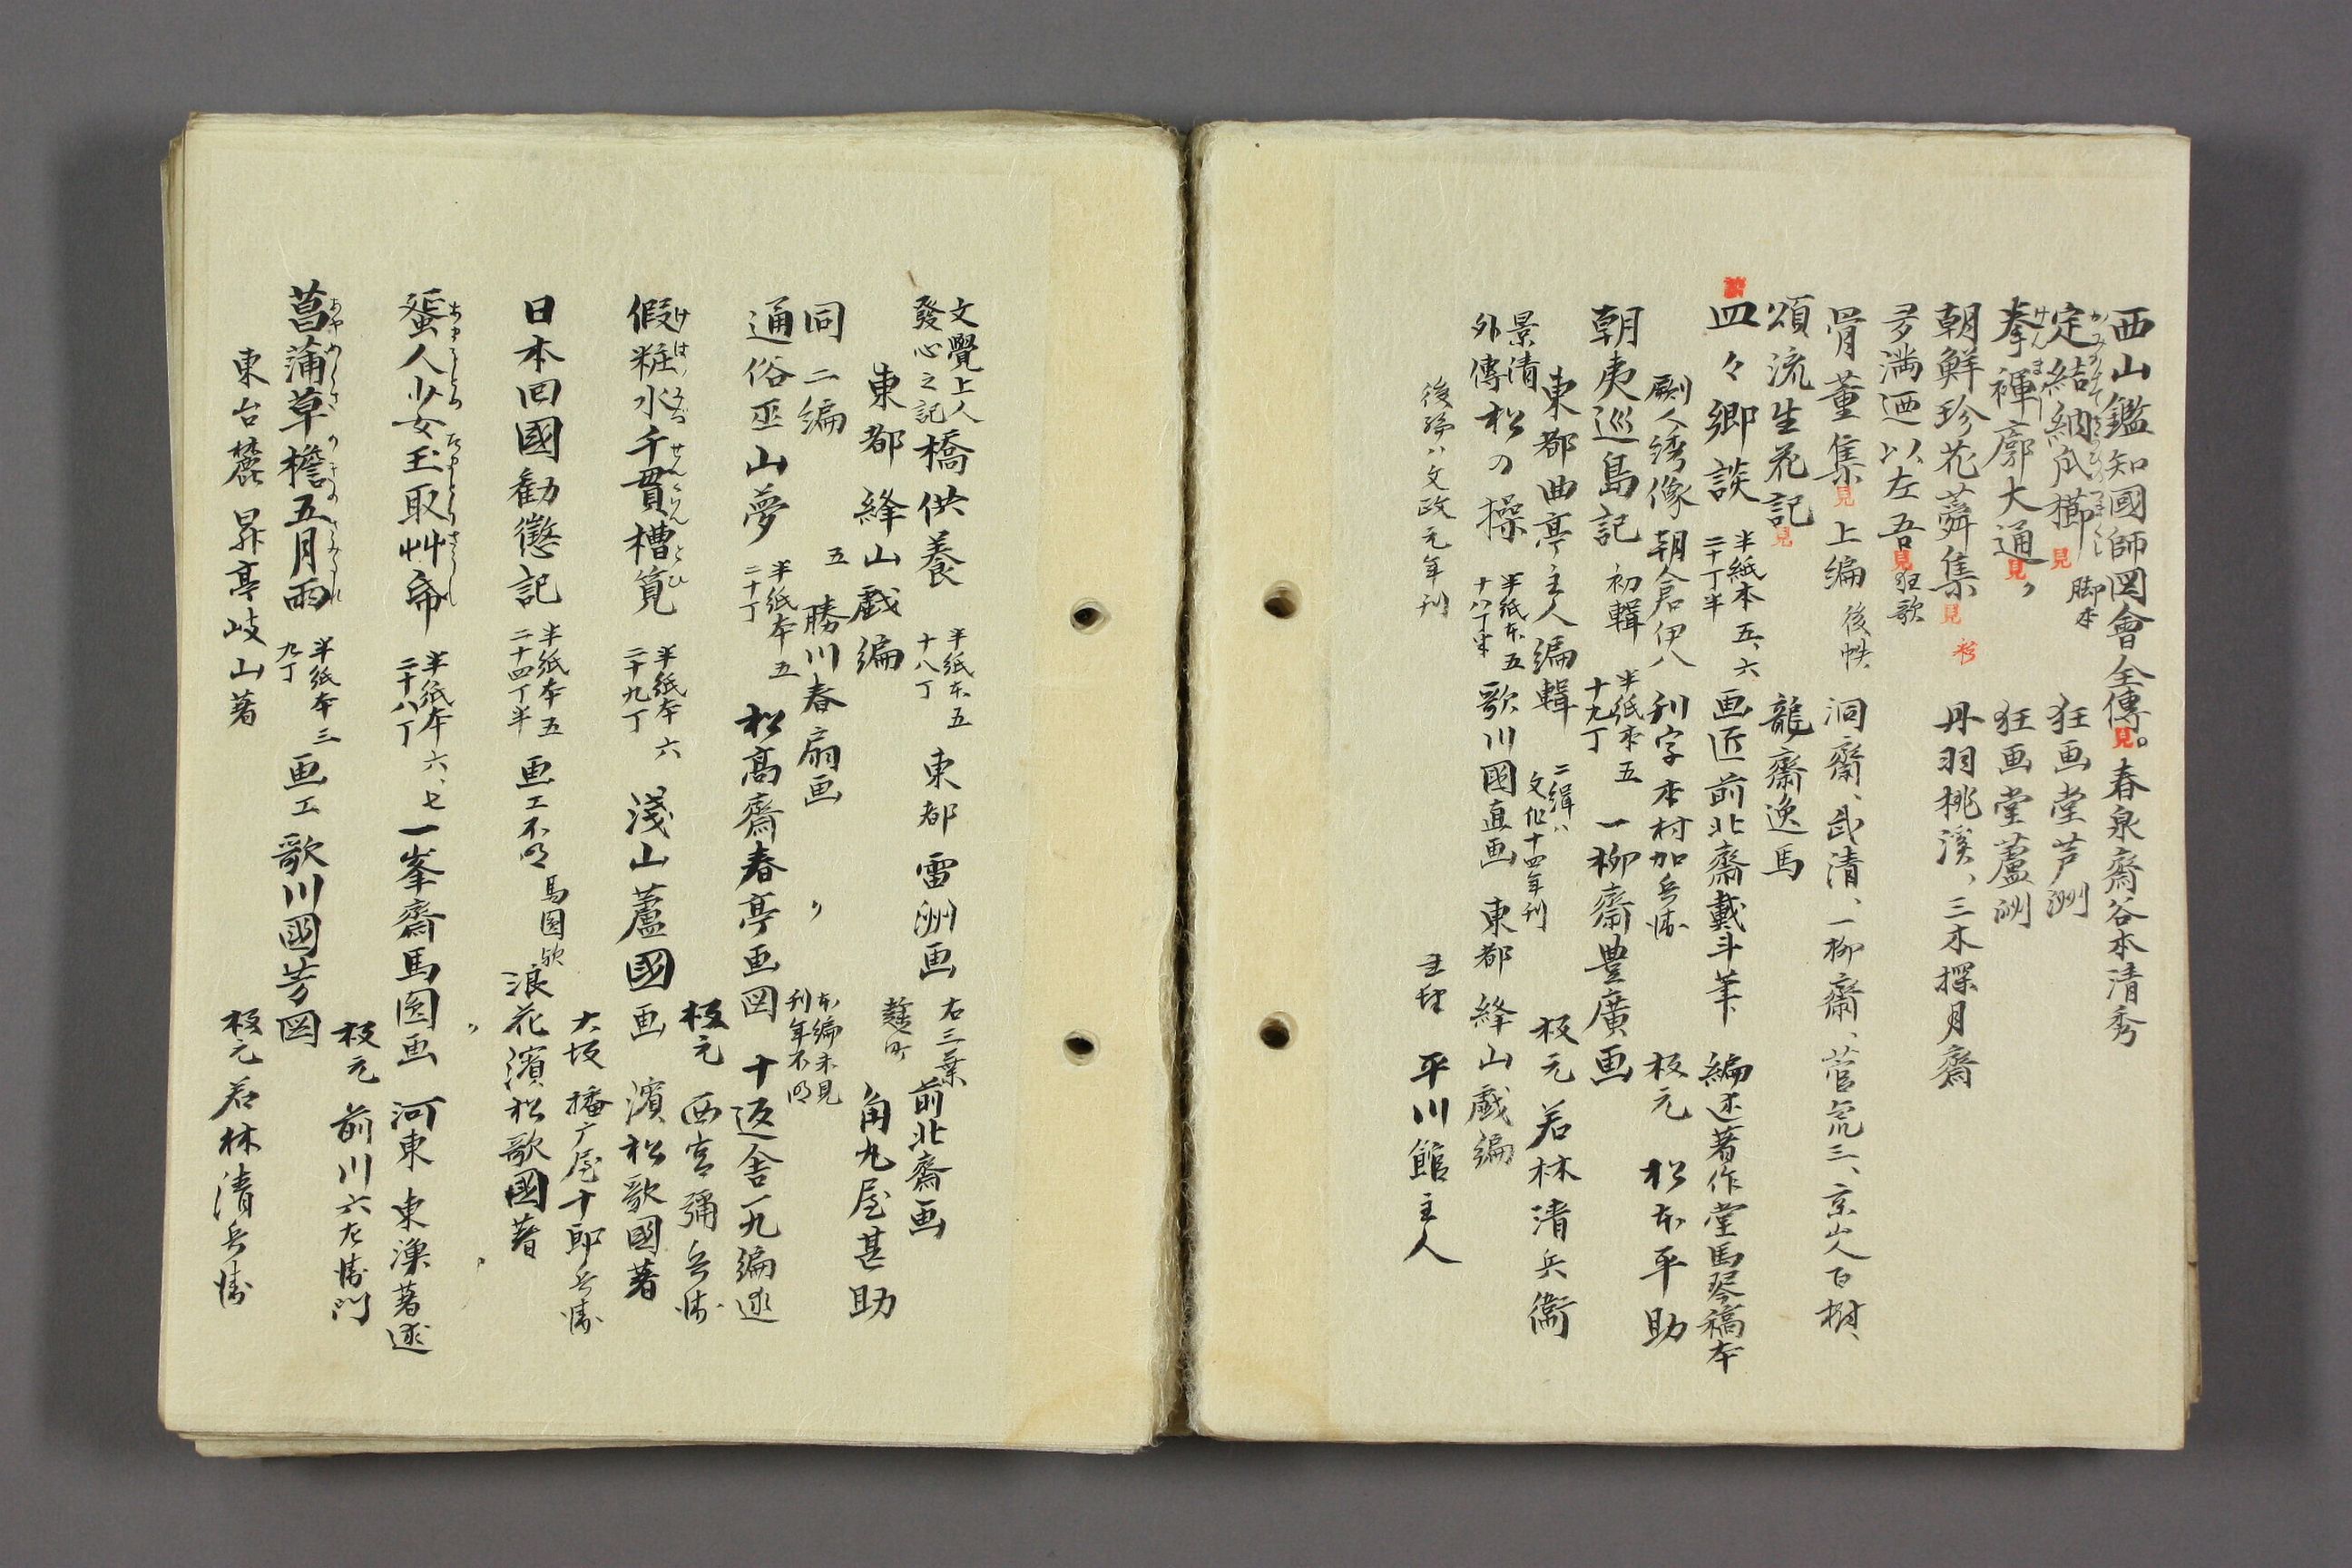 西山鑑知國師図會全傳。見 春泉齋谷本清秀
定結納爪櫛 見 脚本 狂画堂芦洲
拳褌廓大通 見 〃 狂画堂蘆洲
朝鮮珍花蕣集 見 彩 丹羽桃溪、三木探月齋
夛満廼以左吾 見 狂歌
骨董集 見 上編 後帙 洞齋、武清、一柳齋、菅亮三、京山人百樹、
頌流生花記 見 龍齋逸馬
皿々郷談 半紙本 五、六 画匠 前北齋戴斗筆 編述 著作堂馬琴稿本
二十丁半
劂人 綉像 朝倉伊八 刊字 木村加兵衛 板元 松本平助
朝夷巡島記 初輯 半紙本 五 一柳齋豊廣画
十九丁
東都 曲亭主人編輯 二緝ハ 板元 若林清兵衛
文化十四年刊
景清
外傳 松の操 半紙本 五 歌川國直画 東都 絳山戯編
十八丁半
後編ハ文政元年刊 平川館主人
文覺上人
發心之記 橋供養 半紙本 五 東都 雷洲画 右三葉 前北齋画
十八丁
東都 絳山戯編 麹町 角丸屋甚助
同 二編 五 勝川春扇画 〃 本編未見
刊年不明
通俗巫山夢 半紙本 五 松高齋春亭画図 十返舎一九編述
二十丁
板元 西宮彌兵衛
假粧水千貫槽筧 半紙本 六 淺山蘆國画 濱松歌國著
二十九丁
大坂 播广屋十郎兵衛
日本回國勧懲記 半紙本 五 画工不明 馬圓歟 浪花 濱松歌國著
二十四丁半
〃 〃
蜑人少女玉取艸帋 半紙本 六、七 一峯齋馬圓画 河東 東漁著述
二十八丁
板元 前川六左衛門
菖蒲草檐五月雨 半紙本 三 画工 歌川國芳図
九丁
東台麓 昇亭岐山著 板元 若林清兵衛